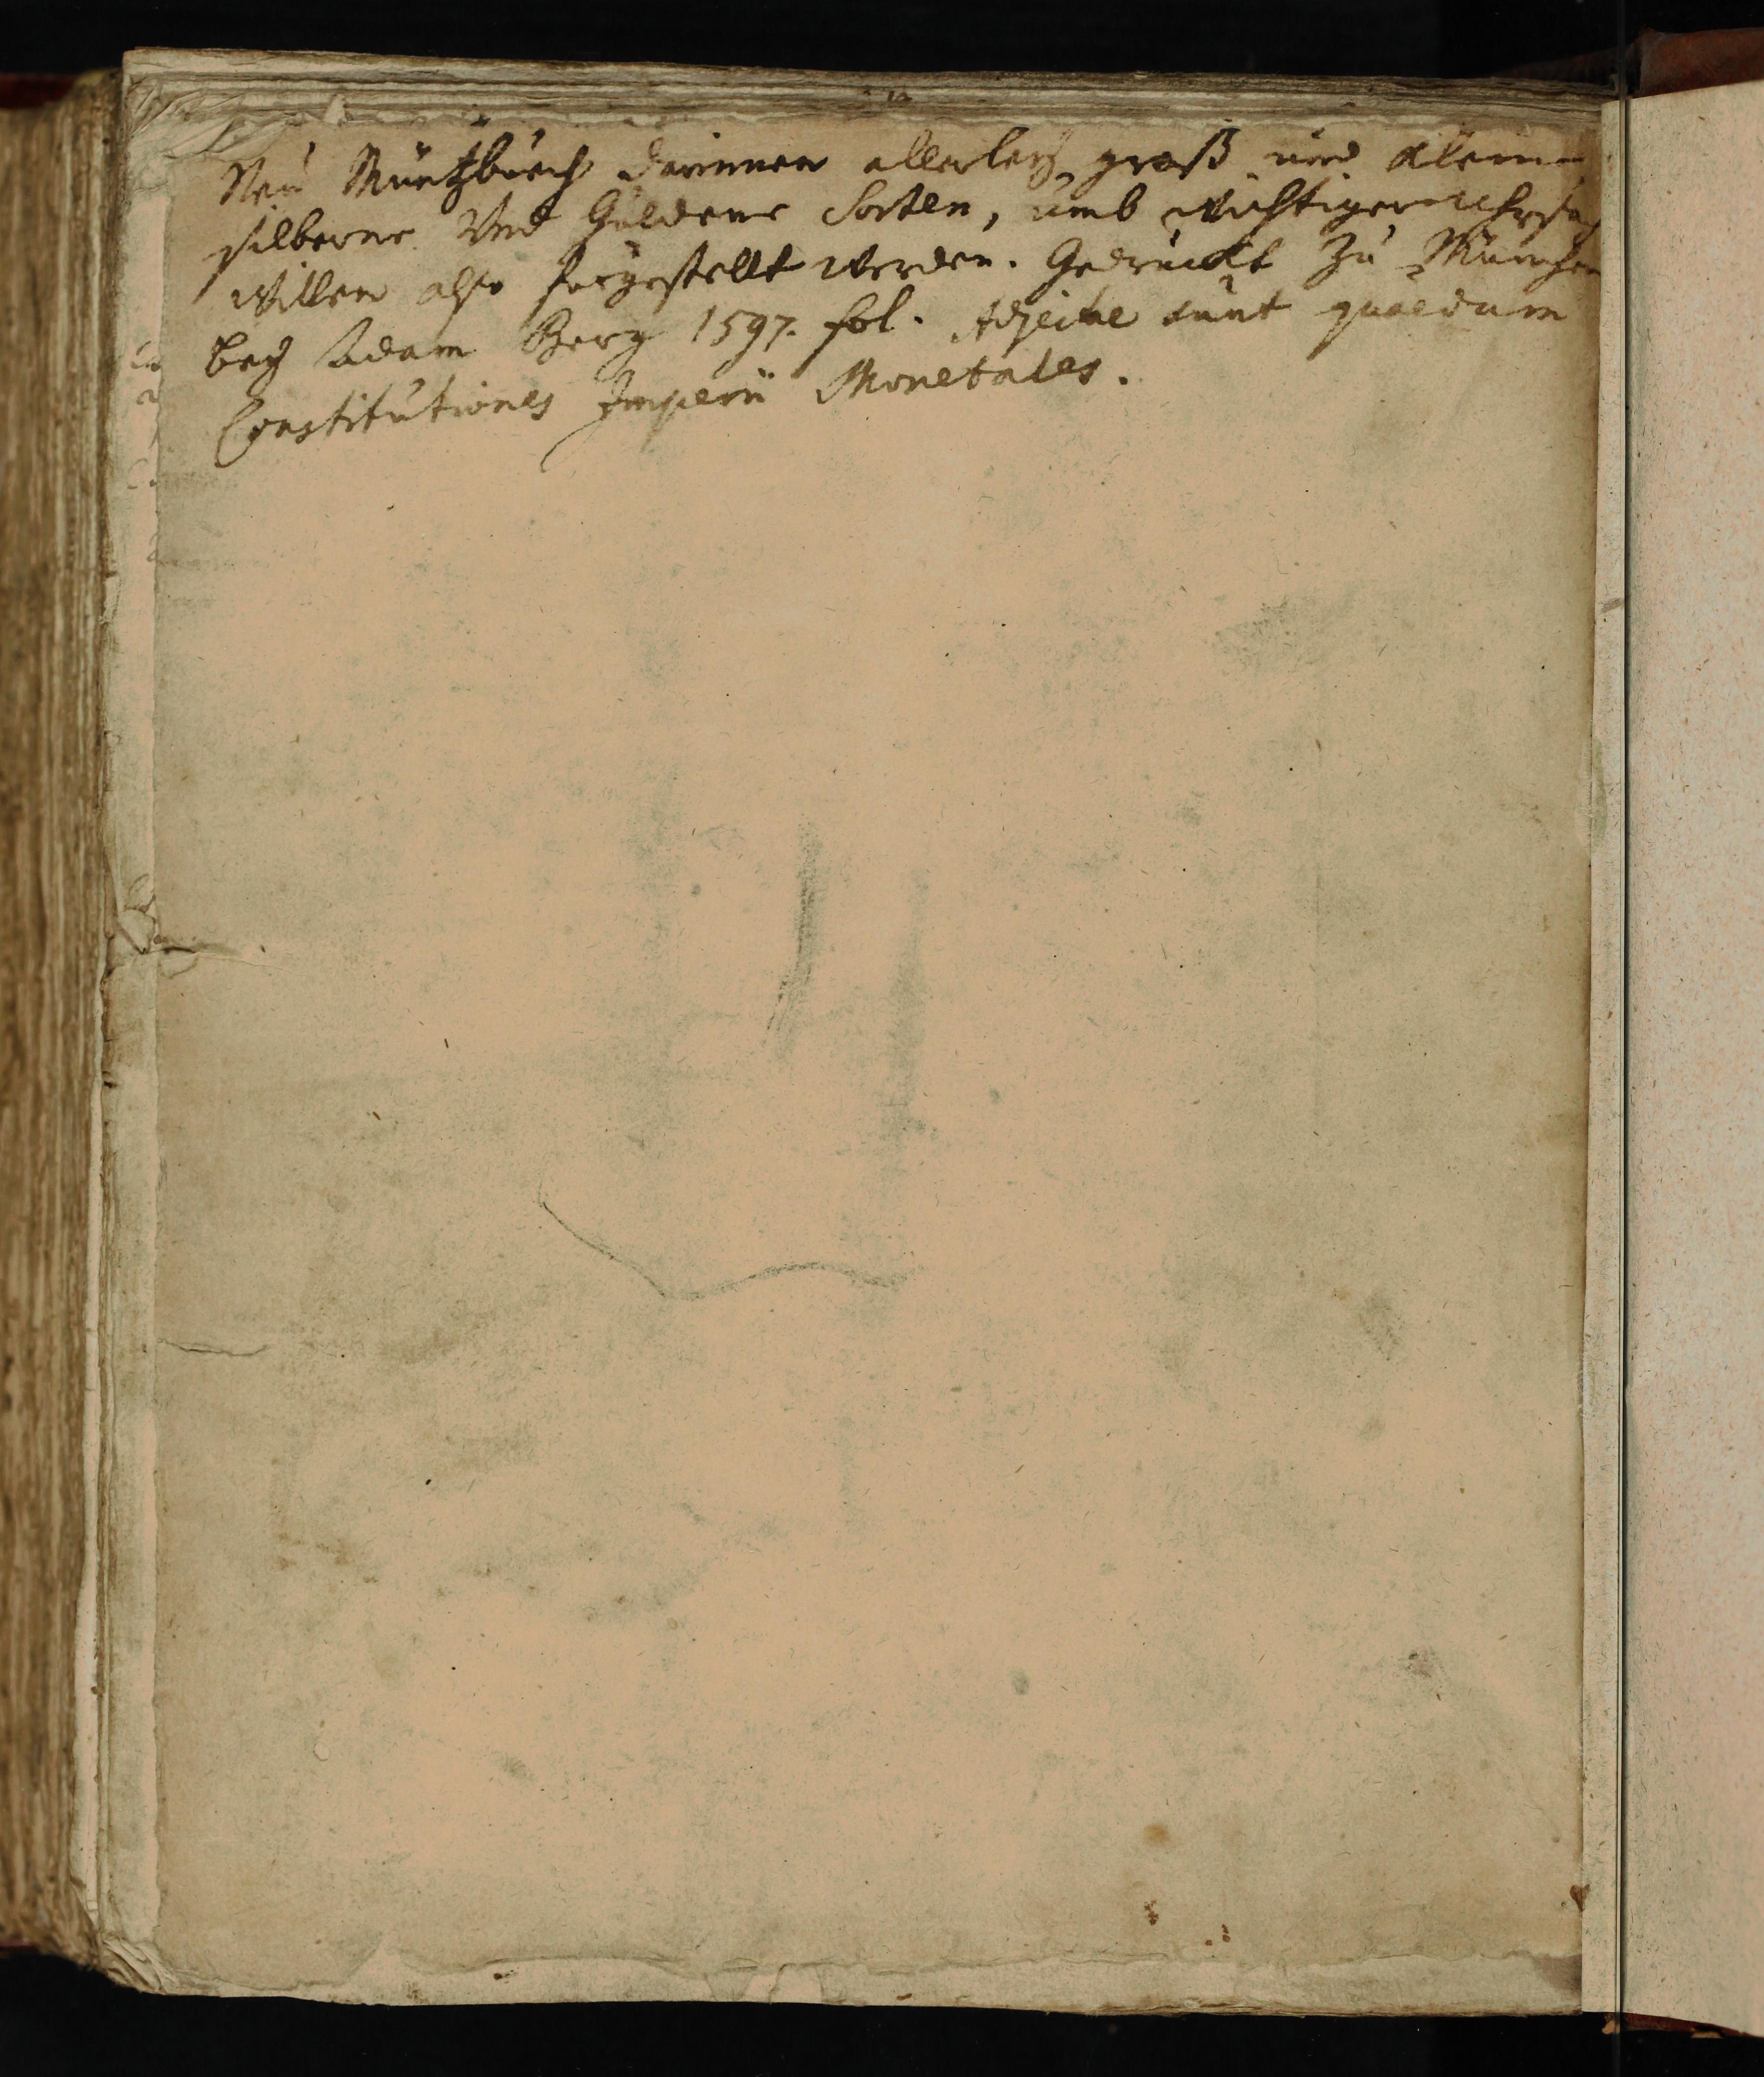 Neu Müntzbuech darinnen allerley groß und kleine
silberne Und Guldene Sorten, umb wichtiger Uhrsach
willen also fürgestellt werden. Gedruckt zu München
bey Adam Berg 1597. fol. Adjectae sunt quaedam
Constitutiones Imperii Monetales.